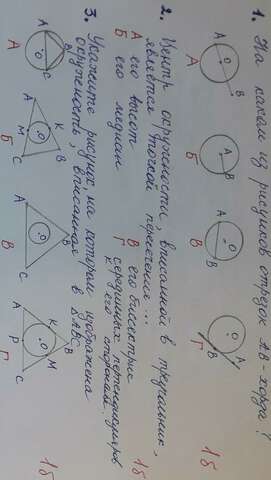 1. На каком из рисунков отрезок АВ - хорда?
A B A B A B A B
O O
А Б В Г 1б
2. Центр окружности, вписанной в треугольник,
является точкой пересечения...
А его высот В его биссектрис
Б его медиан Г серединных перпендикуляров
к его сторонам. 1б
3. Укажите рисунок, на котором изображена
окружность, вписанная в ΔАВС
A B C O
A K M B C O
A B C O
A K B P M C O
А Б В Г 1б